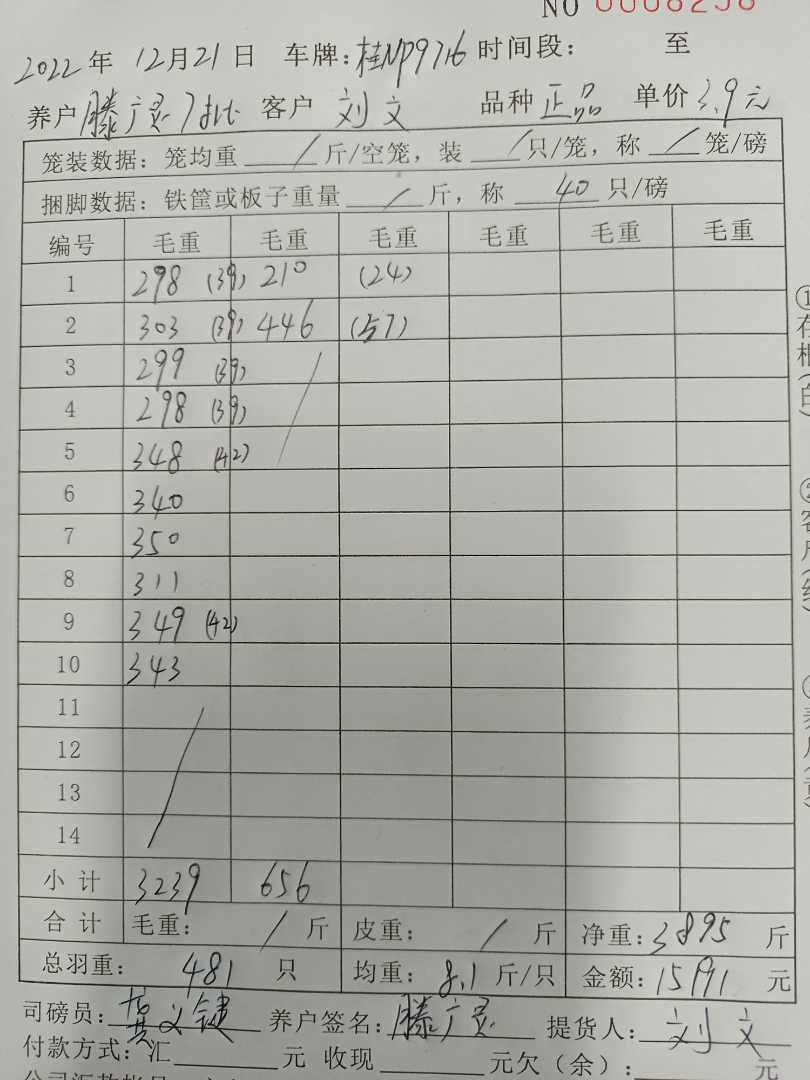 NO 0008258
2022年 12月21日 车牌:桂NP9716 时间段: 至
养户 滕广灵 客户 刘文 品种 正品 单价 3.9元
笼装数据:笼均重 / 斤/空笼,装 / 只/笼,称 / 笼/磅
捆脚数据:铁筐或板子重量 / 斤,称 40 只/磅
编号 毛重 毛重 毛重 毛重 毛重 毛重
1 298 (39) 210 (24)
2 303 (39) 446 (57)
3 299 (39)
4 298 (39)
5 348 (42)
6 340
7 350
8 311
9 349 (42)
10 343
11
12
13
14
小计 3239 656
合计 毛重: / 斤 皮重: / 斤 净重:3895 斤
总羽重: 481 只 均重: 8.1 斤/只 金额:15191 元
司磅员:黄义健 养户签名:滕广灵 提货人:刘文
付款方式:汇 元 收现 元欠(余): 元